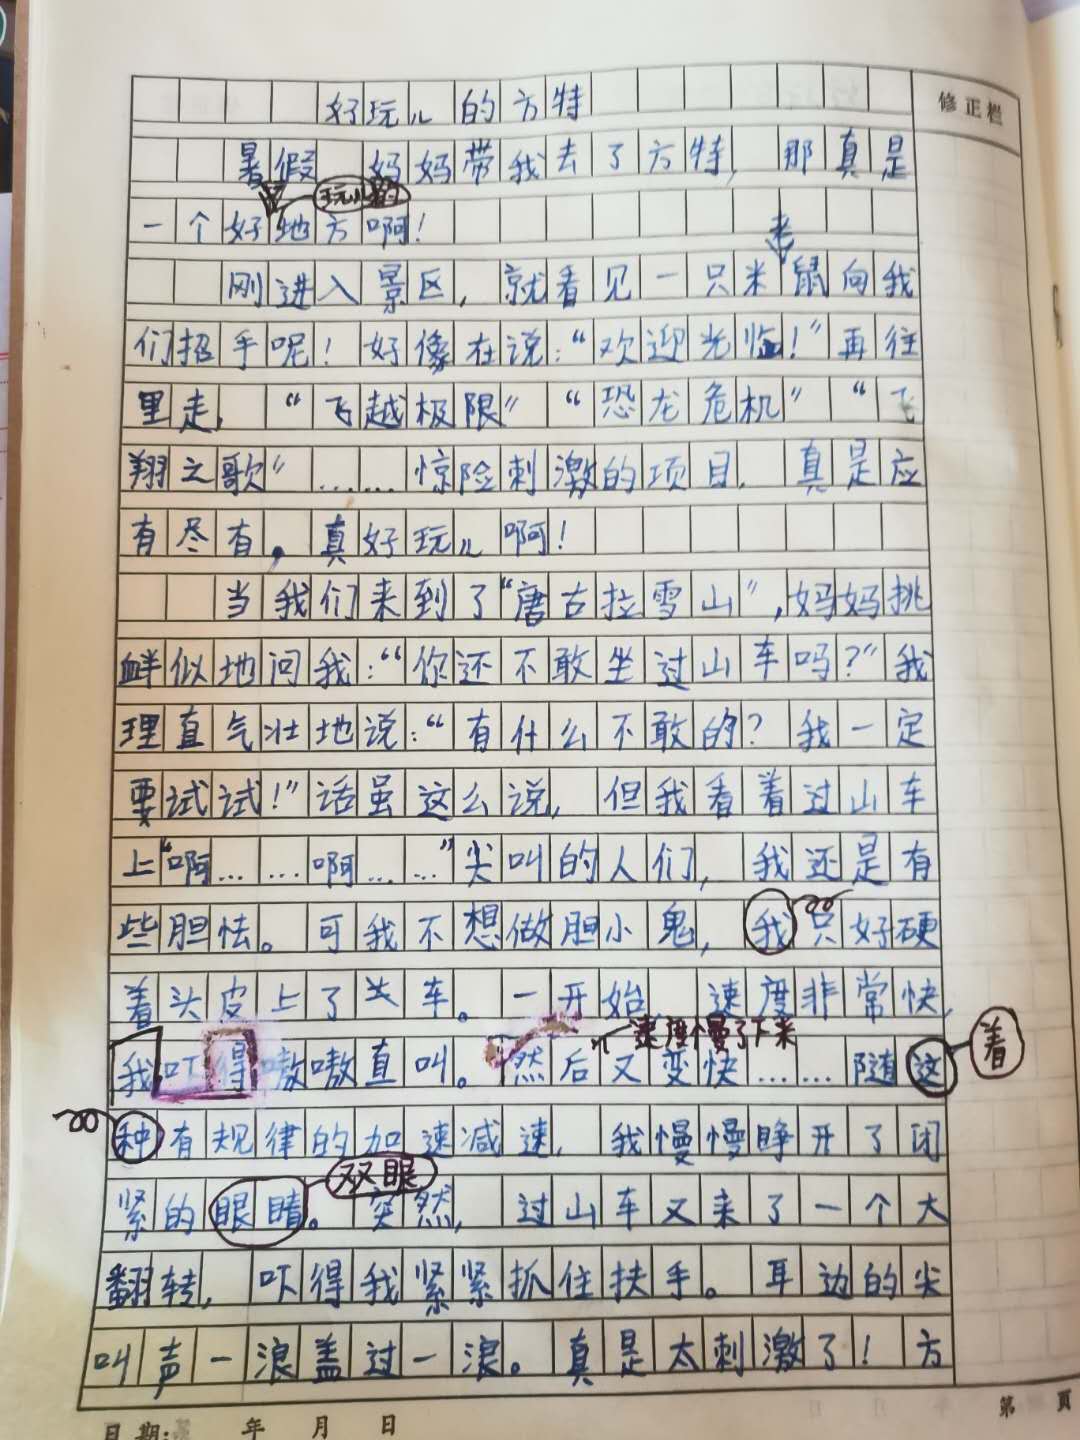 好玩儿的方特
修正栏
暑假 妈妈带我去了方特,那真是
玩儿的
一个好地方啊!
老
刚进入景区,就看见一只米鼠向我
们招手呢!好像在说:“欢迎光临!”再往
里走,“飞越极限”“恐龙危机”“飞
翔之歌”……惊险刺激的项目,真是应
有尽有,真好玩儿啊!
当我们来到了“唐古拉雪山”,妈妈挑
衅似地问我:“你还不敢坐过山车吗?”我
理直气壮地说:“有什么不敢的?我一定
要试试!”话虽这么说,但我看着过山车
上“啊……啊……”尖叫的人们,我还是有
些胆怯。可我不想做胆小鬼,我只好硬
着头皮上了过山车。一开始 速度非常快,
速度慢了下来
我吓得嗷嗷直叫。然后又变快……随这
着
种有规律的加速减速,我慢慢睁开了闭
双眼
紧的眼睛。突然,过山车又来了一个大
翻转,吓得我紧紧抓住扶手。耳边的尖
叫声一浪盖过一浪。真是太刺激了!方
日期: 年 月 日
第 页